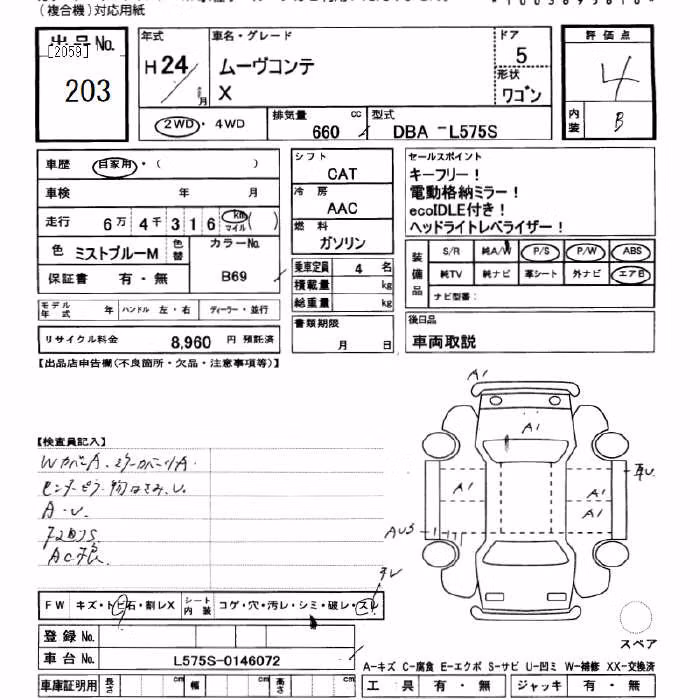 (複合機)対応用紙
出品No.
[2059]
203
年式
H24/
月
車名・グレード
ムーヴコンテ
X
ドア
5
形状
ワゴン
評価点
4
内装
B
2WD・4WD
排気量
660
cc
型式
DBA -L575S
車歴
自家用・( )
車検
年 月
走行
6万 4千 3 1 6 km マイル ( )
色
ミストブルーM
色替
カラーNo.
B69
保証書
有・無
モデル年式
年
ハンドル 左・右
ディーラー・並行
リサイクル料金
8,960 円 預託済
シフト
CAT
冷房
AAC
燃料
ガソリン
乗車定員 4 名
積載量 kg
総重量 kg
書類期限
月 日
セールスポイント
キーフリー!
電動格納ミラー!
ecoIDLE付き!
ヘッドライトレベライザー!
装備品
S/R 純A/W P/S P/W ABS
純TV 純ナビ 革シート 外ナビ エアB
ナビ型番:
後日品
車両取説
【出品店申告欄(不良箇所・欠品・注意事項等)】
【検査員記入】
A1
A1
A1
A1
A1
FW キズ・トビ石・割レX
シート内装
コゲ・穴・汚レ・シミ・破レ・スレ
スレ
登録No.
車台No.
L575S-0146072
スペア
A-キズ C-腐食 E-エクボ S-サビ U-凹ミ W-補修 XX-交換済
車庫証明用 長さ cm 幅 cm 高さ cm
工具 有・無
ジャッキ 有・無